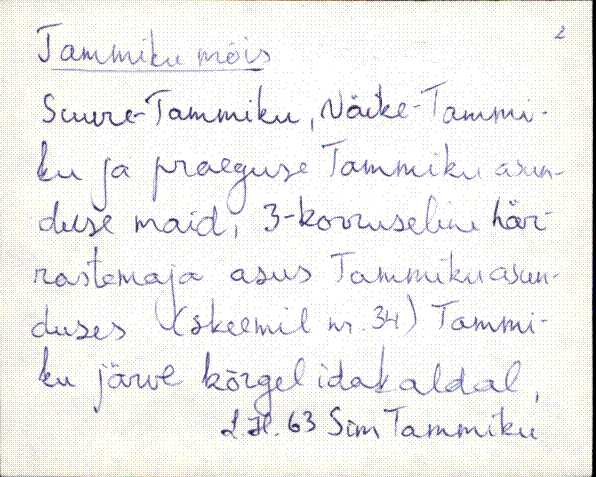 2
Tammiku mõis
Suure-Tammiku, Väike-Tammi-
ku ja praeguse Tammiku asun-
duse maid, 3-korruseline här-
rastemaja asus Tammiku asun-
duses (skeemil nr. 34) Tammi-
ku järve kõrgel idakaldal,
63 Sim Tammiku